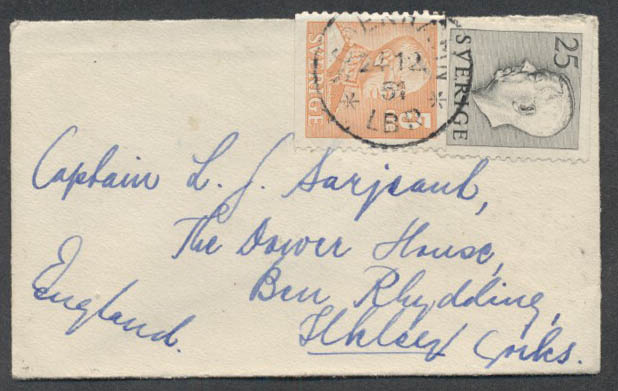 SVERIGE
5
24 12
51
LBR
SVERIGE
25
Captain L. J. Sarjeant,
The Dower House,
Ben Rhydding,
Ilkley Yorks.
England.